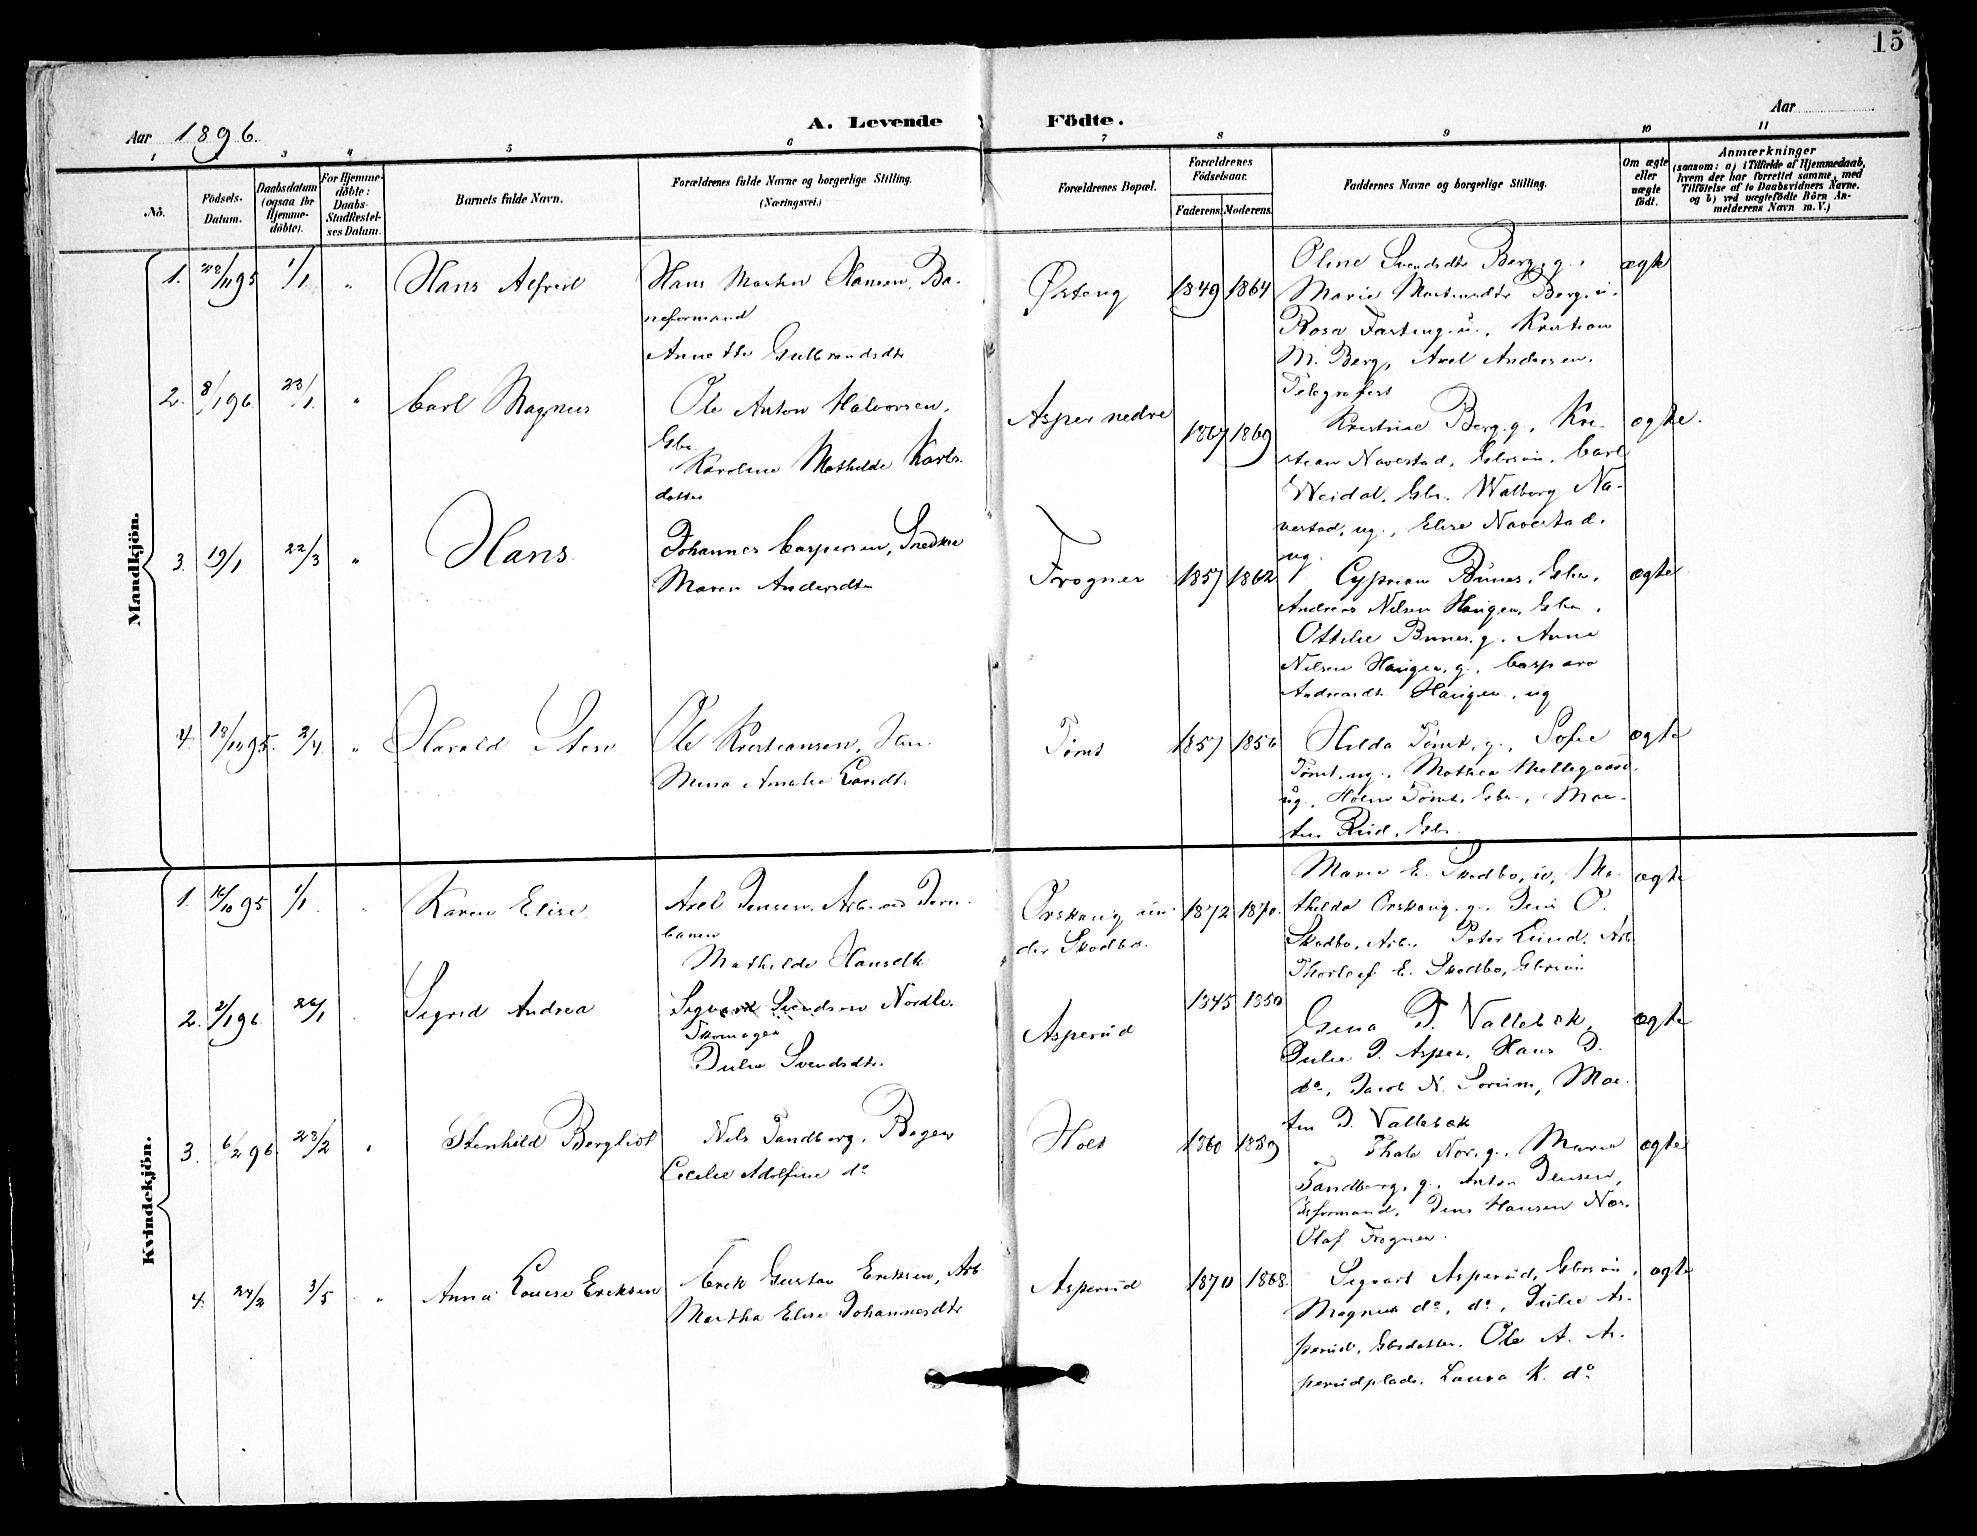 15
Aar 1896.
A. Levende Födte.
Aar
1 3 4 5 6 7 8 9 10 11
No.
Födsels-Datum.
Daabsdatum (ogsaa for Hjemme-döbte).
For Hjemme-döbte: Daabs-Stadfæstel-ses Datum.
Barnets fulde Navn.
Forældrenes fulde Navne og borgerlige Stilling.
(Næringsvei.)
Forældrenes Bopæl.
Forældrenes Födselsaar.
Faderens. Moderens.
Faddernes Navne og borgerlige Stilling.
Om ægte eller uægte födt.
Anmærkninger
(saasom: a) i Tilfælde af Hjemmedaab,
hvem der har forrettet samme, med
Tilföielse af to Daabsvidners Navne.
og b) ved uægtefödte Börn An-
melderens Navn m. V.)
Mandkjön.
1. 28/11 95 1/1 " Hans Alfred
Hans Martin Hansen, Ba-
neformand
Annette Gulbrandsdtr
Østeng 1849 1864
Oline Svendsdtr Berg, g.,
Marie Martinsdtr Berg, u.
Rosa Fasting u., Kristian
M. Berg, Axel Andersen.
Telegrafist
ægte
2. 8/1 96 23/1 " Carl Magnus
Ole Anton Halvorsen,
Gbr
Karoline Mathilde Karls-
datter
Asper nedre 1867 1869
Kristine Berg, g., Kri-
stian Naverstad, Gbrsøn, Carl
Weidal, Gbr. Walborg Na-
verstad, ug., Elise Naverstad,
ug.
ægte.
3. 19/1 22/3 " Hans
Johannes Caspersen, Snedker
Maren Andersdtr
Frogner 1857 1862
Cyprian Bunes, Gbr.
Andreas Nilsen Haugen, Gbr.
Ottilie Bunes, g. Anne
Nilsen Haugen, g., Caspara
Andreasdtr Haugen, ug
ægte
4. 18/10 95. 2/4 " Harald Sten
Ole Kristiansen,
Mina Amalie
Tømt 1857 1856
Hilda Tømt, g., Sofie
Tømt, ug., Mathea Mellegaard,
ug., Tømt, Gbr., Mar-
tin Rud, Gbr.
ægte
Kvindekjön.
1. 16/10 95 1/1 Karen Elise
Axel Jensen, Arb. ved Jern-
banen
Mathilde Hansdtr
Ørskaug un-
der Skodbo. 1872 1870.
Marie E. Skodbo, u, Ma-
thilda Ørskaug, g., Jens O.
Skodbo, Arb. Peter Lund, Arb.
Thorleif E. Skodbo, Gbrsøn
ægte
2. 2/1 96 26/1 Sigrid Andrea
Sigvard Svendsen Nordli.
Skomager
Julie Svendsdtr.
Asperud 1845 1850
Gina J. Vallebæk,
Julie J. Asper, Hans J.
do, Jacob N. Sørum, Mar-
tin J. Vallebæk
ægte
3. 6/2 96 23/2 " Stenhild Bergliot
Nils Tandberg, Bager
Cecilie Adolfine do
Holt 1860 1859
Thale Nor, g., Marie
Tandberg, g., Anton Jensen,
formand, Jens Hansen Nor,
Olaf Frogner.
ægte
4. 24/2 3/5 " Anna Louise Eriksen
Erik Gustav Eriksen, Arb
Martha Elise Johannesdtr
Asperud 1870 1868.
Sigvart Asperud, Gbrsøn,
Magnus do, do, Julie As-
perud, Gbrdatter. Ole A. As-
perudplads. Laura K. do
ægte